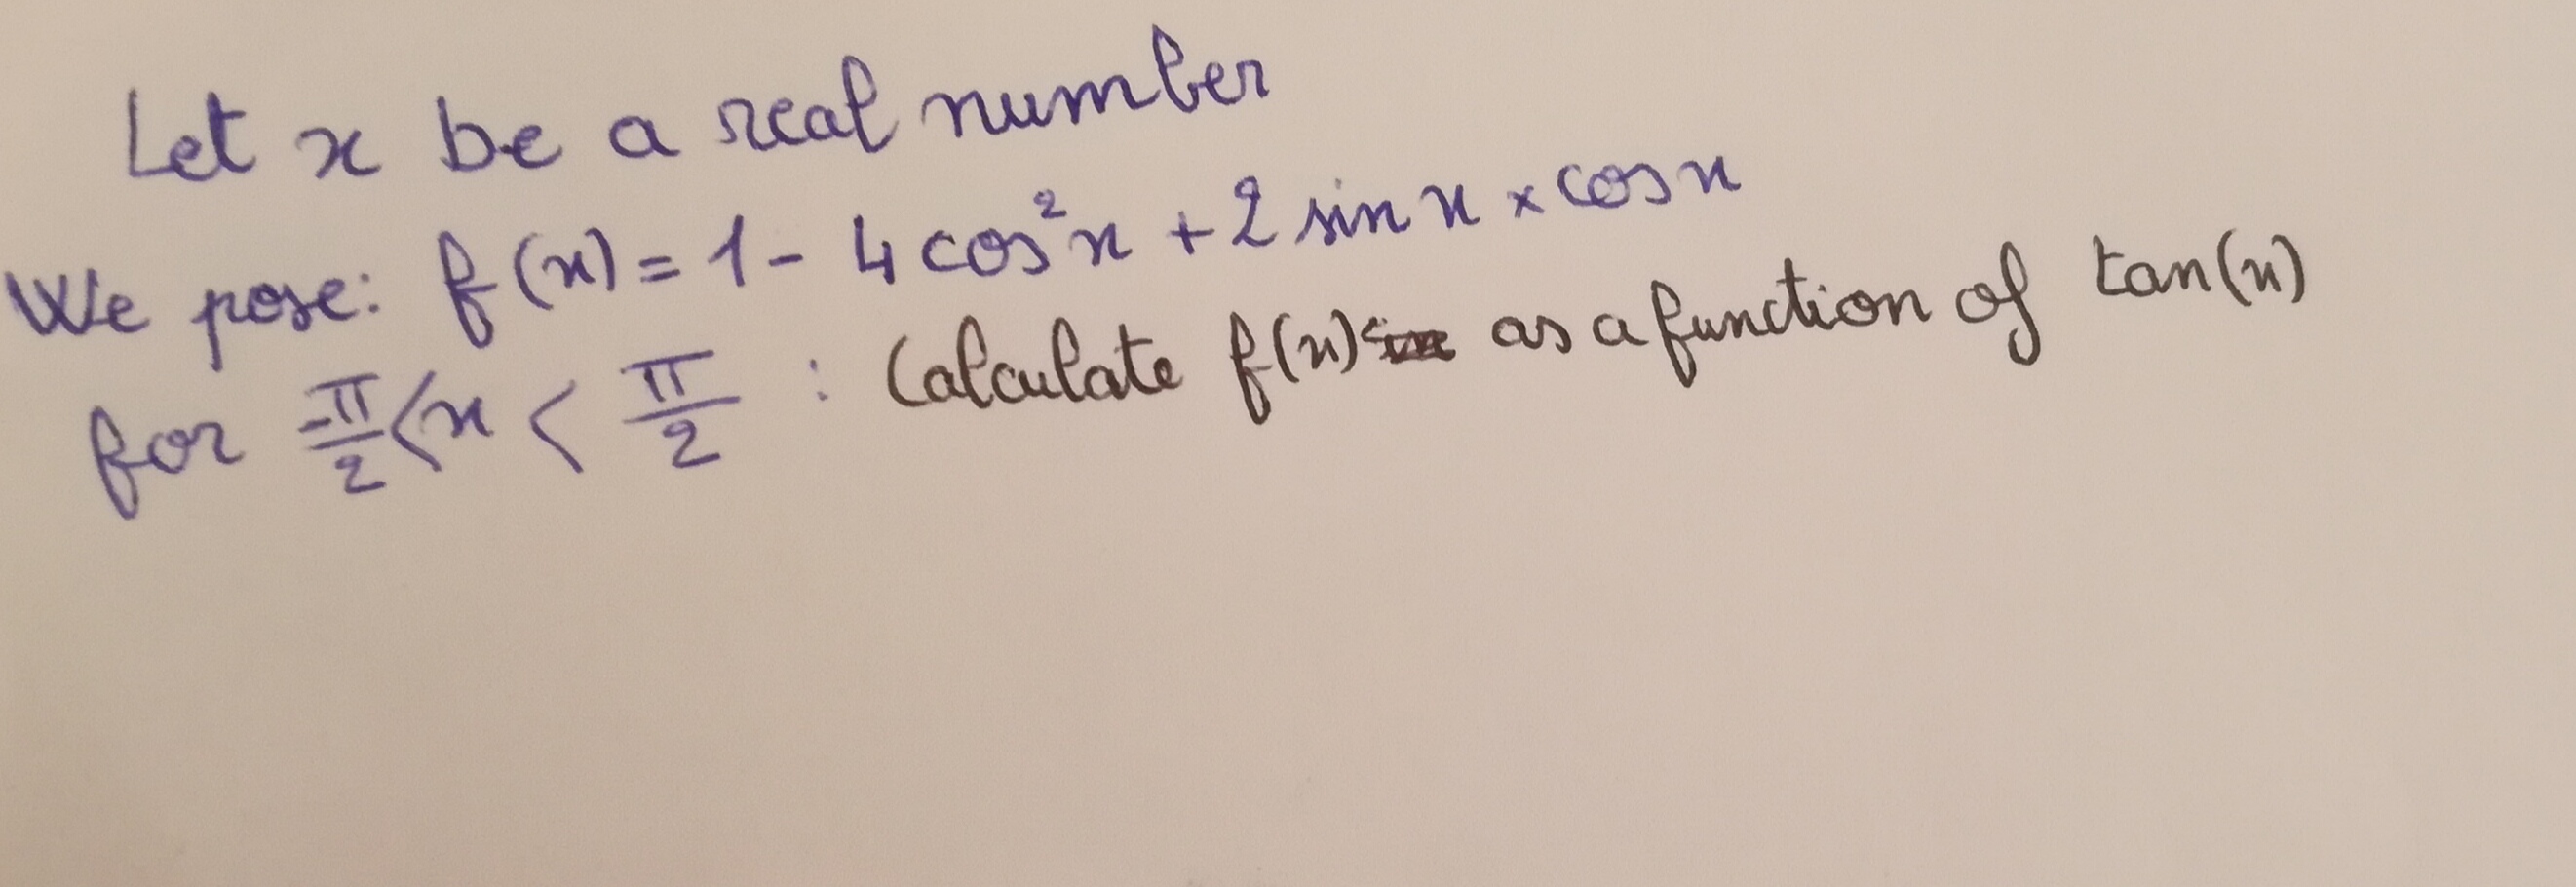 Let x be a real number
We pose: f(x) = 1 - 4 cos²x + 2 sin x × cos x
for -π/2 < x < π/2 : Calculate f(x) as a function of tan(x)